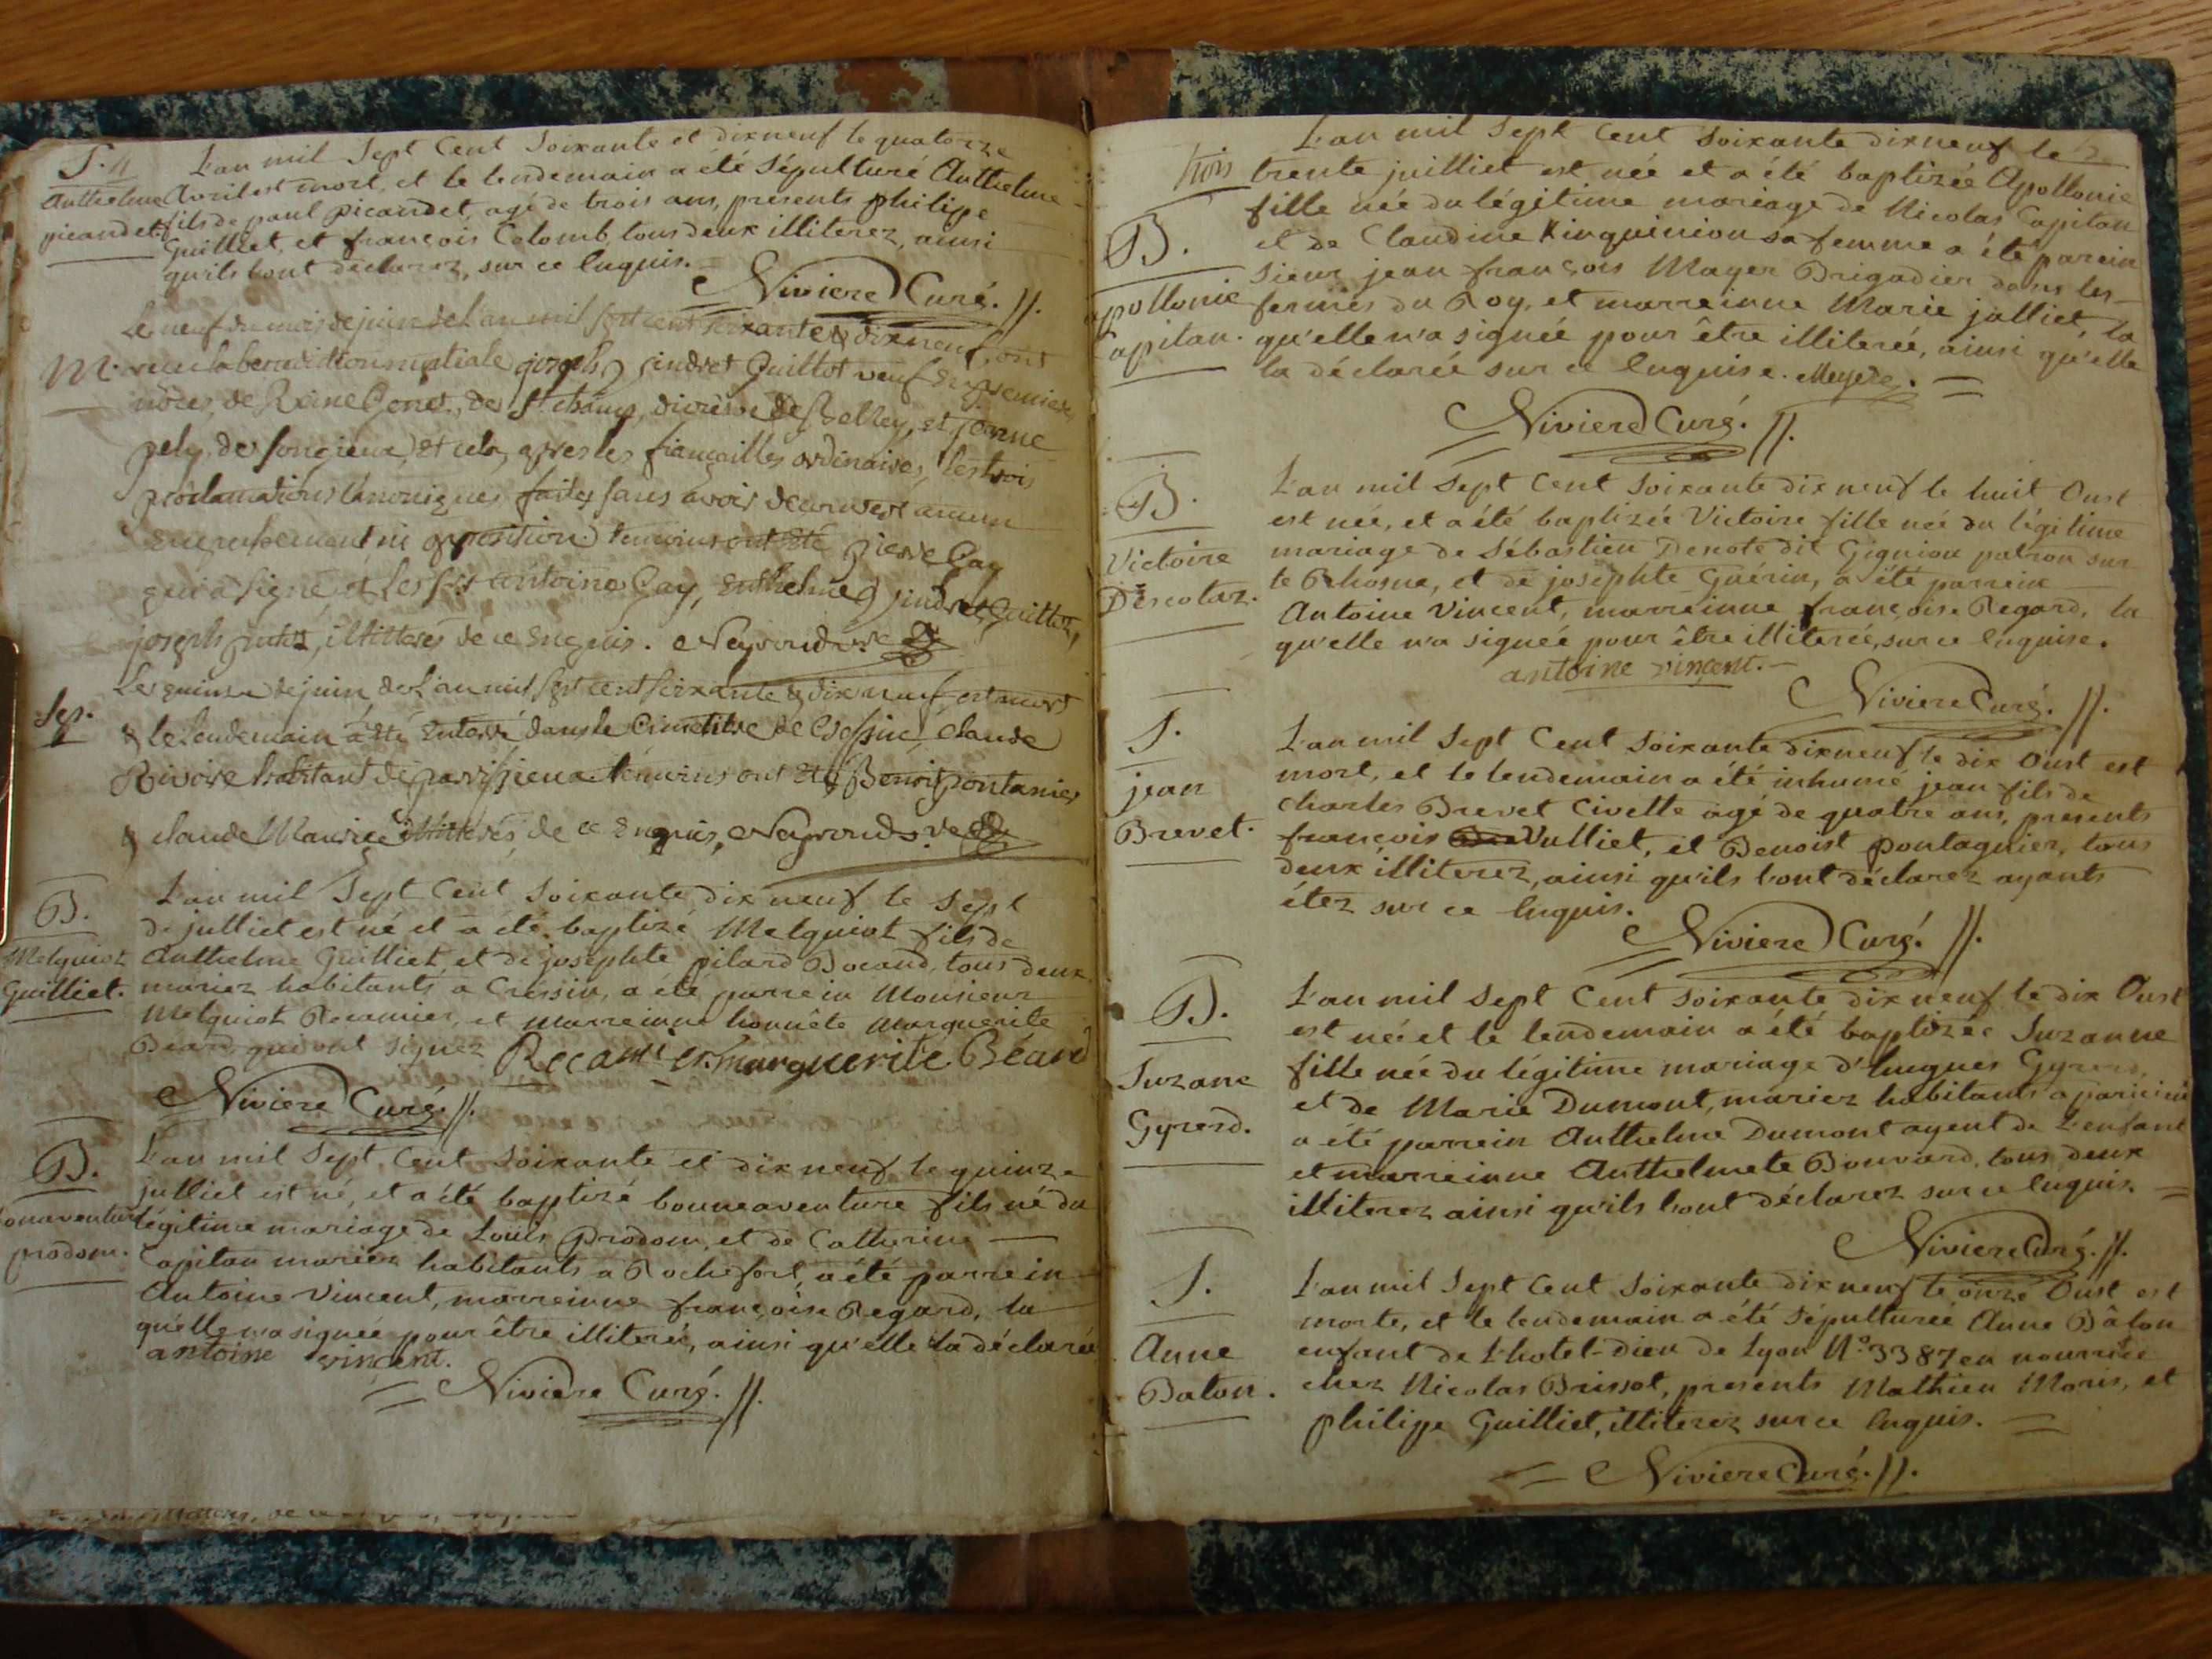 S. 4
Anthelme
picandet.
L'an mil Sept Cent Soixante et dixneuf le quatorze
Avril est mort, et le lendemain a été Sépulturé Anthelme
fils de paul picandet, agé de trois ans, presents philippe
Guilliet, et françois Colomb, tous deux illiterez, ainsi
qu'ils l'ont déclarez, sur ce Enquis.
Niviere Curé.
M.
Le neuf du mois de juin de l'an mil sept cent soixante & dixneuf, ont
recu la benediction nuptiale joseph jindret Guillot veuf en premieres
nôces de Reine Genet, de St champ, diocèse de Belley, et jeanne
pely de songieux, Et cela, apres les fiançailles ordinaires, les trois
proclamations canoniques faites sans avoir decouvert aucun
Empechement ni opposition. temoins ont Eté pierre Gay
qui a signé & les srs antoine Gay, Enthelme jindret Guillot,
joseph illitterés de ce Enquis. Neyroud ve
Sep.
Le quinze de juin de l'an mil sept cent soixante & dix neuf est mort
& le Lendemain a Eté Enterré dans le Cimetitre de Cressin Claude
Rivoire habitant de parissieu temoins ont Eté Benoit pontanier
& claude Maurice illitterés de ce Enquis, Neyroud ve
B.
Melquiot
Guilliet.
L'an mil Sept Cent Soixante dix neuf le Sept
de julliet est né et a été baptizé Melquiot fils de
Anthelme Guilliet et de josephte pilard Bocand, tous deux
mariez habitants a Cressin, a été parrein Monsieur
Melquiot Recamier, et Marreinne honnête Marguerite
Béard qui ont signez Recamier marguerite Béard
Niviere Curé.
B.
bonaventure
prodom.
L'an mil Sept Cent Soixante et dix neuf le quinze
julliet est né, et a été baptizé bonneaventure fils né du
légitime mariage de Louis Prodom, et de Catherine
Capitan mariez habitants a Rochefort, a été parrein
Antoine Vincent, marreinne françoise Regard, la
qu'elle n'a signée pour être illiteréé, ainsi qu'elle la déclarée
antoine vincent.
Niviere Curé.
trois
B.
Apollonie
Capitan.
L'an mil Sept Cent Soixante dixneuf le
trente juilliet est née et a été baptizée Apollonie
fille née du légitime mariage de Nicolas Capitan
et de Claudine Kinquinion sa femme a été parein
Sieur jean françois Mayer Brigadier dans les
fermes du Roy, et marreinne Marie jalliet, la
qu'elle n'a signée pour être illiterée, ainsi qu'elle
la déclarée sur ce Enquise.
Niviere Curé.
B.
Victoire
Descotaz.
L'an mil Sept Cent Soixante dix neuf le huit Oust
est née, et a été baptizée Victoire fille née du légitime
mariage de Sébastien Denote dit Gigniou patron sur
le Rhosne, et de josephte Guérin, a été parrein
Antoine Vincent, marreinne françoise Regard, la
qu'elle n'a signeé pour être illiterée, sur ce Enquise.
antoine vincent.
Niviere Curé.
S.
jean
Brevet.
L'an mil Sept Cent Soixante dixneuf le dix Oust est
mort, et le lendemain a été inhumé jean fils de
Charles Brevet Civette agé de quatre ans, presents
françois Vulliet, et Benoist pontagnier, tous
deux illiterez, ainsi qu'ils l'ont déclarez ayants
étez sur ce Enquis.
Niviere Curé.
B.
Suzane
Gyrerd.
L'an mil Sept Cent Soixante dix neuf le dix Oust
est née et le lendemain a été baptizée Suzanne
fille née du légitime mariage d'hugues Gyrerd,
et de Marie Dumont, mariez habitants a
a été parrein Anthelme Dumont ayent de L'enfant
et marreinne Anthelmete Bouvard, tous deux
illiterez ainsi qu'ils l'ont déclarez sur ce Enquis.
Niviere Curé.
S.
Anne
Baton.
L'an mil Sept Cent Soixante dix neuf le onze Oust est
morte, et le lendemain a été Sépulturée Anne Bâton
enfant de L'hotel-Dieu de Lyon N.º 3387 en nourrice
chez Nicolas Brissot, presents Mathieu Moris, et
philippe Guilliet, illiterez sur ce Enquis.
Niviere Curé.